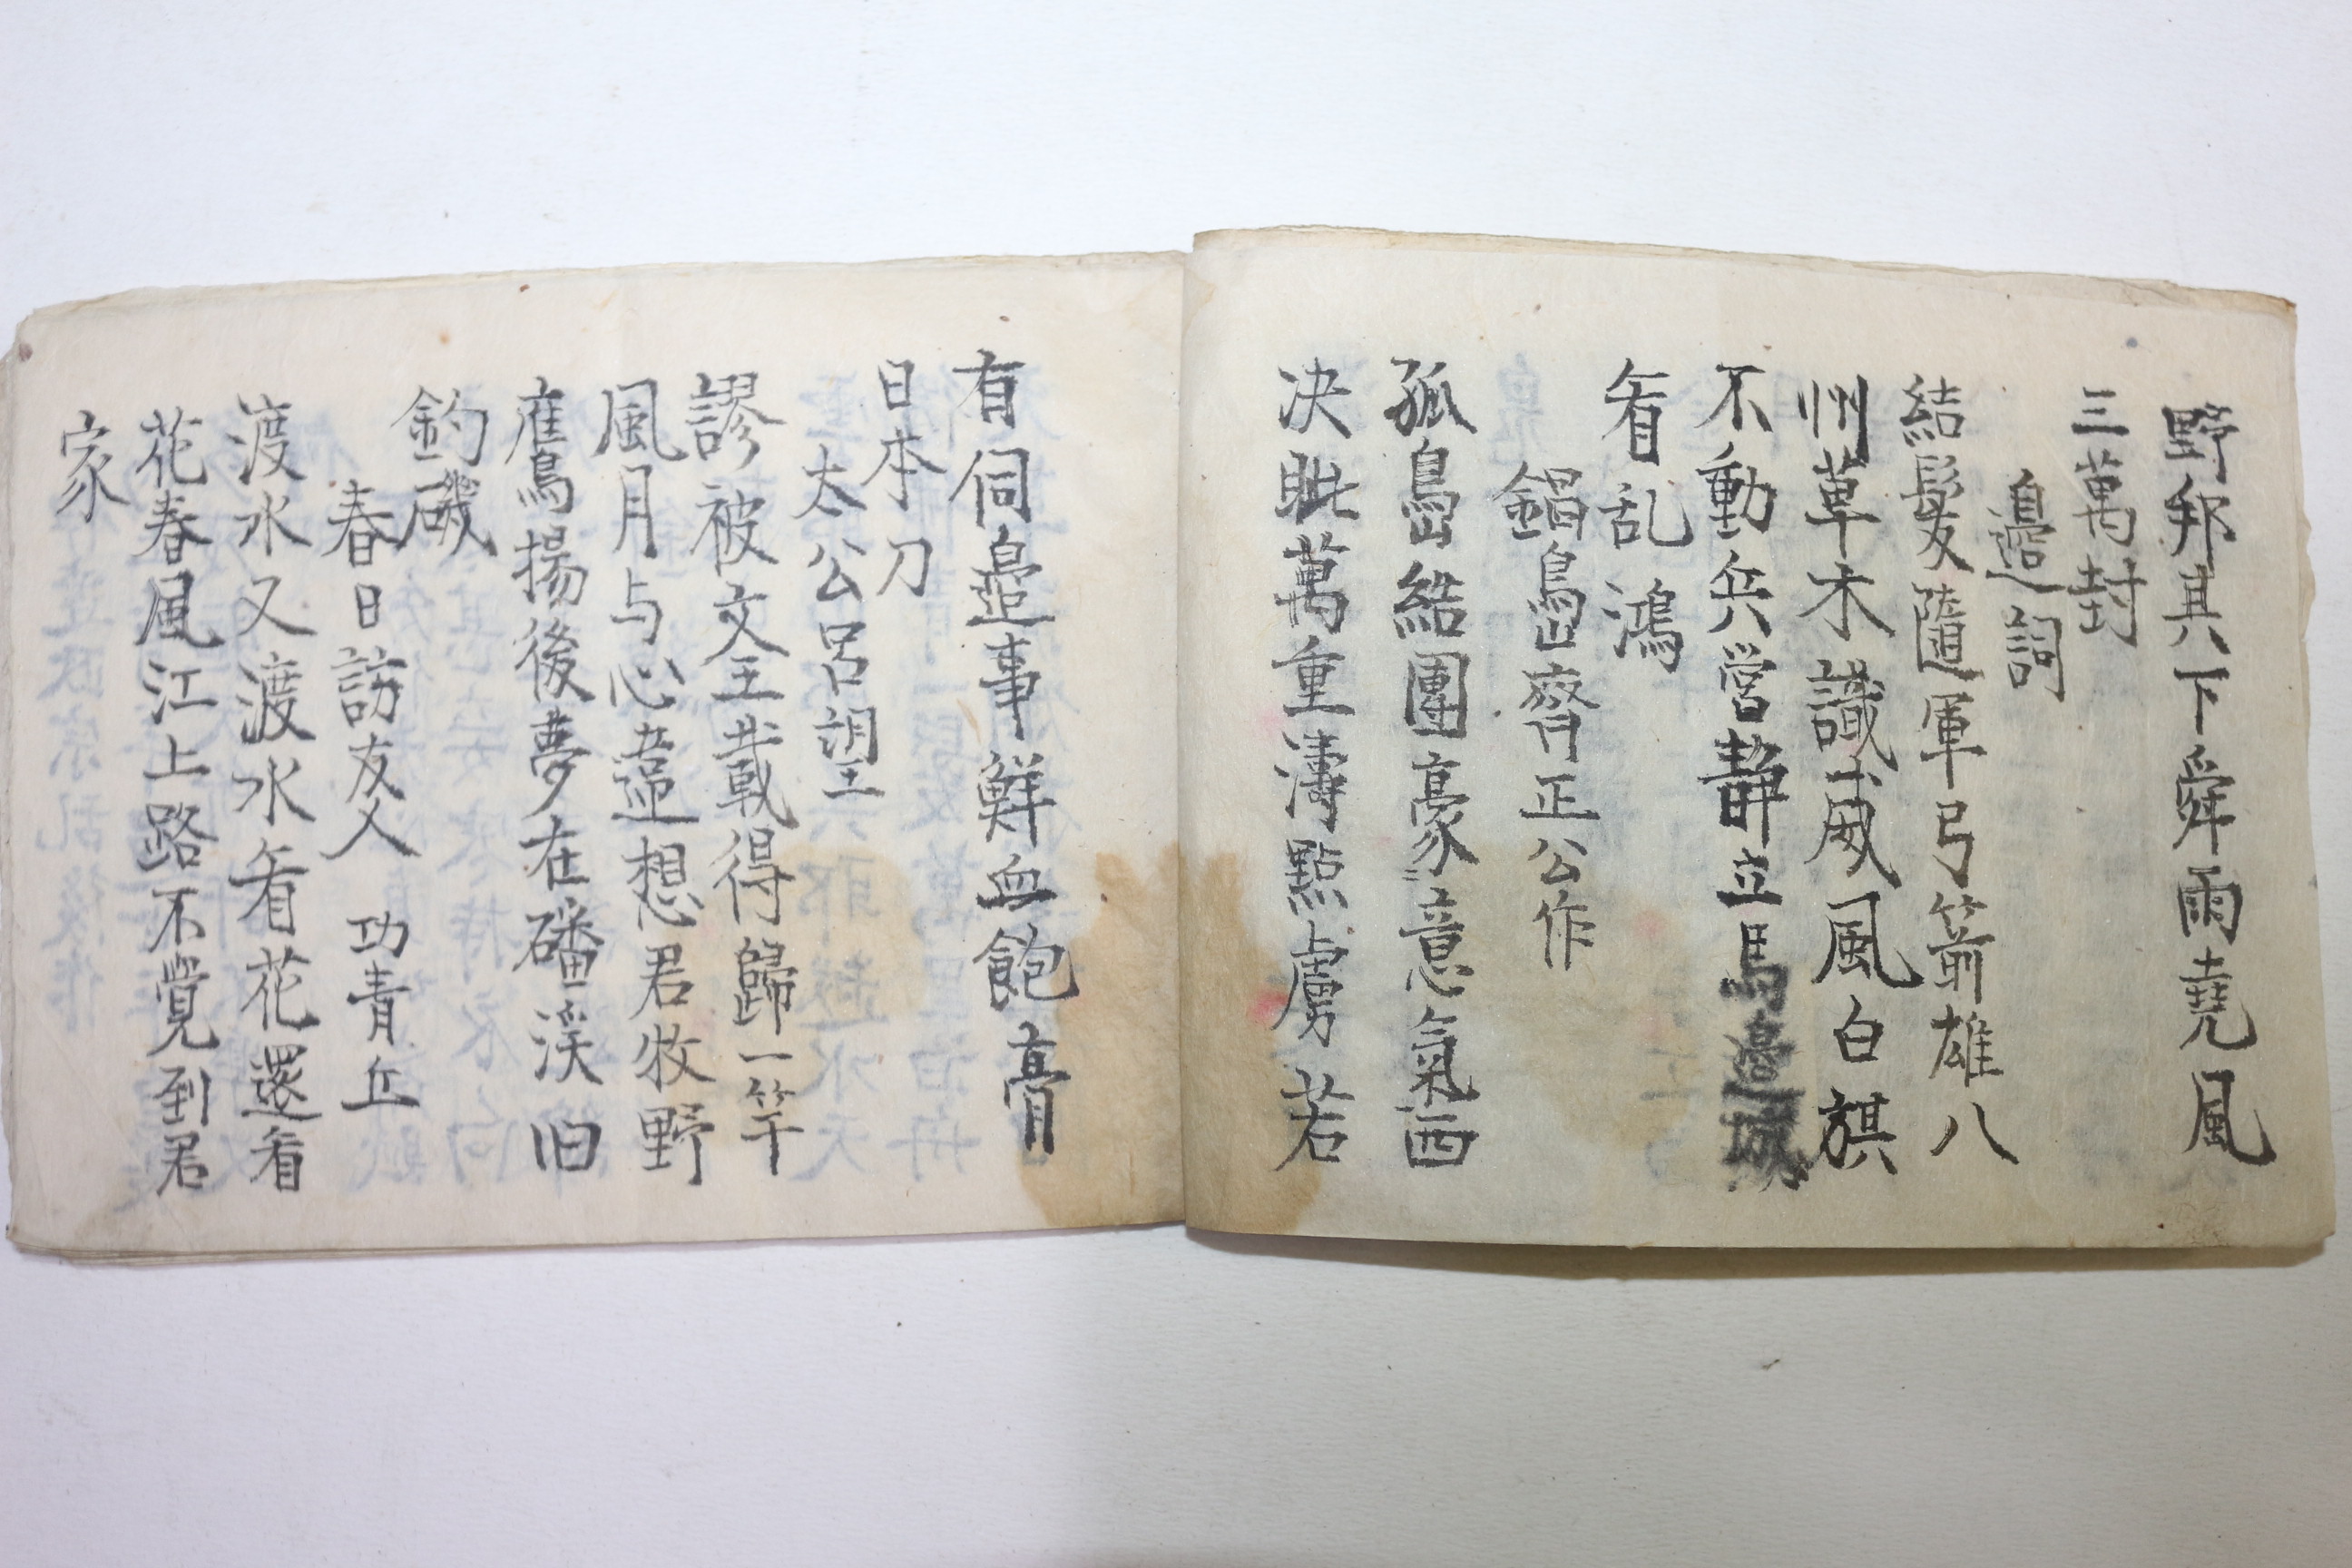 野邦其下舜雨堯風
三萬封
邉詞
結髪随軍弓箭雄八
州草木識威風白旗
不動兵營静立馬邉城
看乱鴻
鍋島齊正公作
孤島結團豪意氣西
決眦萬重濤黙虜若
有伺邉事鮮血飽膏
日本刀
太公呂望
謬被文王載得歸一竿
風月与心違想君牧野
鷹揚後夢在磻渓旧
釣磯
春日訪友人 功青丘
渡水又渡水看花還看
花春風江上路不覚到君
家